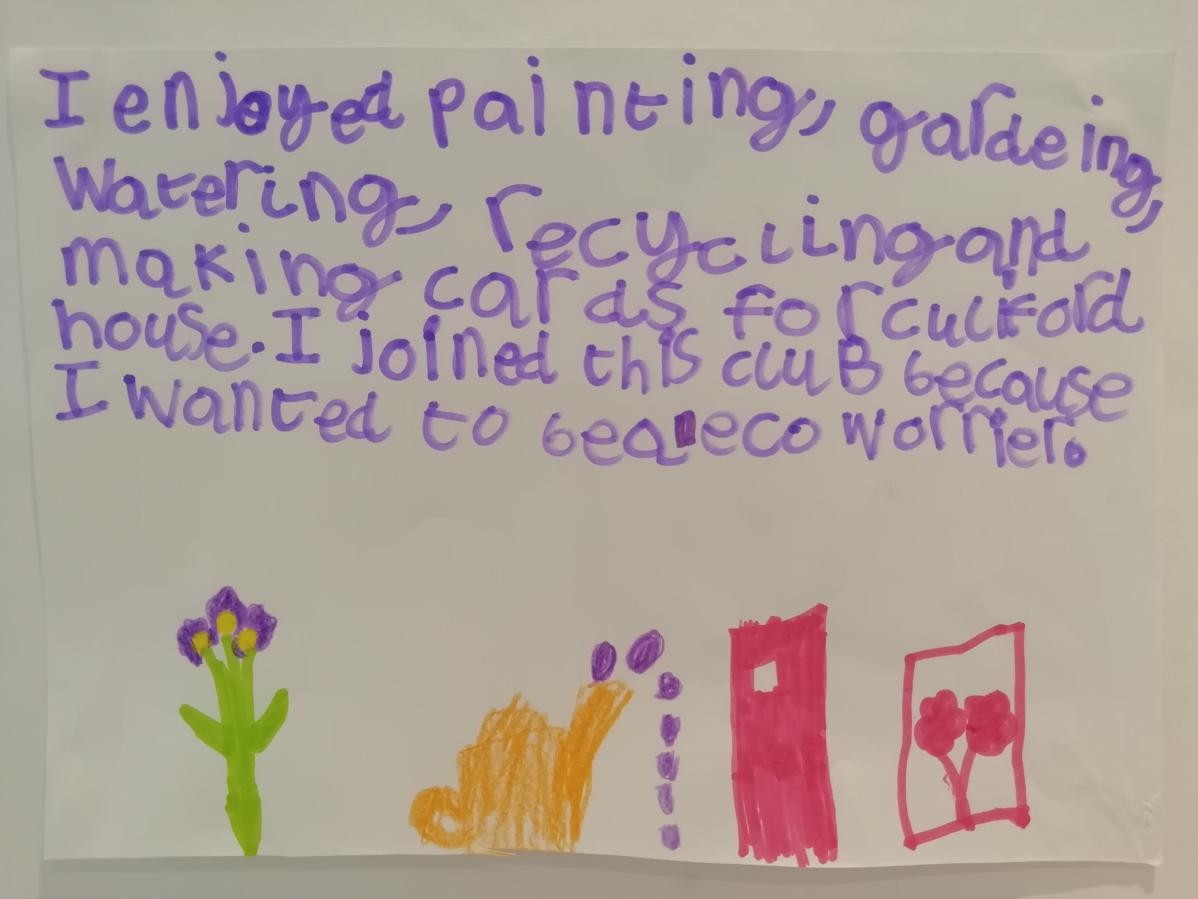 I enjoyed painting, gardeing,
Watering, recycling and
making cards for culford
house. I joined this cluB because
I wanted to be a eco worrier.